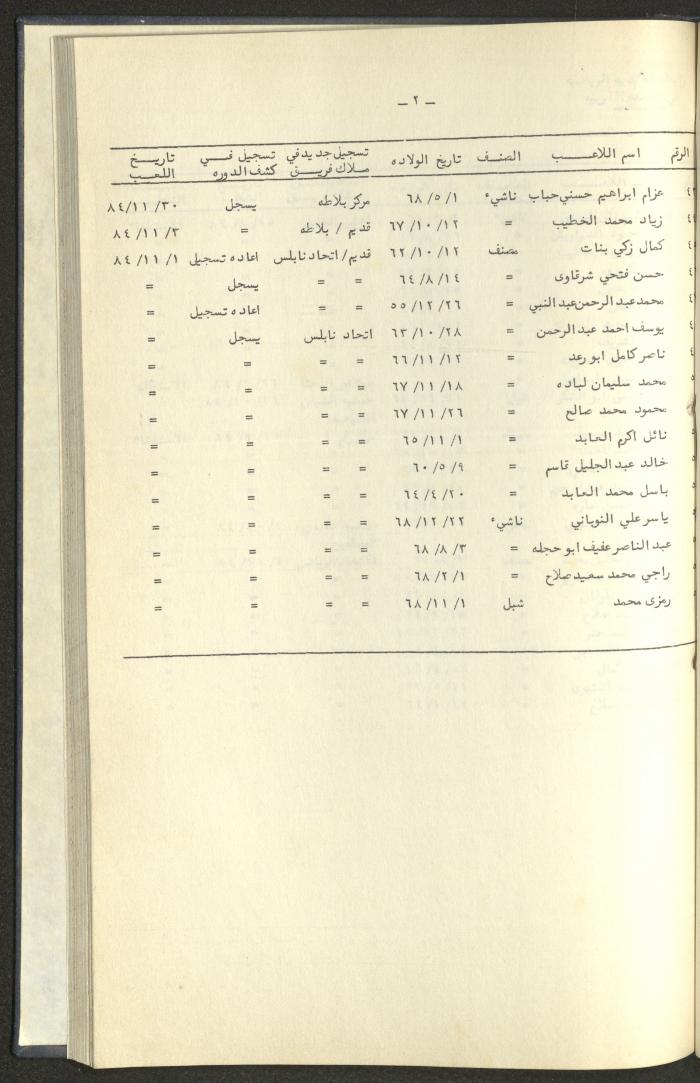 — ٢ —
الرقم اسم اللاعب الصنف تاريخ الولاده تسجيل جديد في ملاك فريق تسجيل في كشف الدوره تاريخ اللعب
عزام ابراهيم حسني حباب ناشيء ١/ ٥/ ٦٨ مركز بلاطه يسجل ٣٠/ ١١/ ٨٤
زياد محمد الخطيب = ١٢/ ١٠/ ٦٧ قديم / بلاطه = ٣/ ١١/ ٨٤
كمال زكي بنات مصنف ١٢/ ١٠/ ٦٢ قديم/ اتحاد نابلس اعاده تسجيل ١/ ١١/ ٨٤
حسن فتحي شرقاوى = ١٤/ ٨/ ٦٤ = = يسجل =
محمد عبد الرحمن عبد النبي = ٢٦/ ١٢/ ٥٥ = = اعاده تسجيل =
يوسف احمد عبد الرحمن = ٢٨/ ١٠/ ٦٣ اتحاد نابلس يسجل =
ناصر كامل ابو رعد = ١٢/ ١١/ ٦٦ = = = =
محمد سليمان لباده = ١٨/ ١١/ ٦٧ = = = =
محمود محمد صالح = ٢٦/ ١١/ ٦٧ = = = =
نائل اكرم العابد = ١/ ١١/ ٦٥ = = = =
خالد عبد الجليل قاسم = ٩/ ٥/ ٦٠ = = = =
باسل محمد العابد = ٢٠/ ٤/ ٦٤ = = = =
ياسر علي النوباني ناشيء ٢٢/ ١٢/ ٦٨ = = = =
عبد الناصر عفيف ابو حجله = ٣/ ٨/ ٦٨ = = = =
راجي محمد سعيد صلاح = ١/ ٢/ ٦٨ = = = =
رمزى محمد شبل ١/ ١١/ ٦٨ = = = =